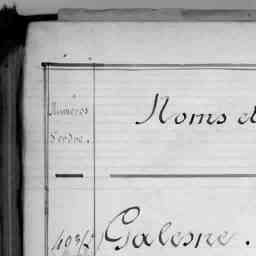 Numéros
d'ordre.
Noms et
Galesne.